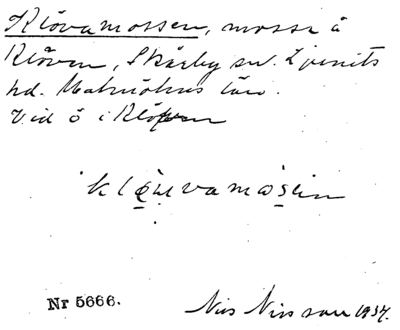 Klövamossen, mosse å
Klöven, Skårby sn. Ljunits
hd. Malmöhus län.
Vid ö i Klöven
klöuvamosen
Nr 5666.
Nils Nilsson 1937.